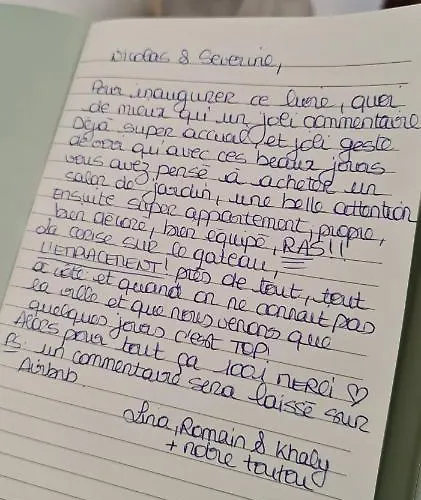 Nicolas & Severine,
Pour inaugurer ce livre, quoi
de mieux qu'un joli commentaire
Déjà super accueil, et joli geste
de voir qu'avec ces beaux jours
vous avez pensé à acheter un
salon de Jardin, une belle attention
Ensuite super appartement, propre,
bien décoré, bien équipé, RAS!!
La cerise sur le gateau,
L'EMPLACEMENT! près de tout, tout
à côté et quand on ne connait pas
la ville et que nous venons que
quelques jours c'est TOP!
Alors pour tout ça 1001 MERCI ♡
Ps: un commentaire sera laissé sur
Airbnb
Lina, Romain & Khaly
+ notre toutou